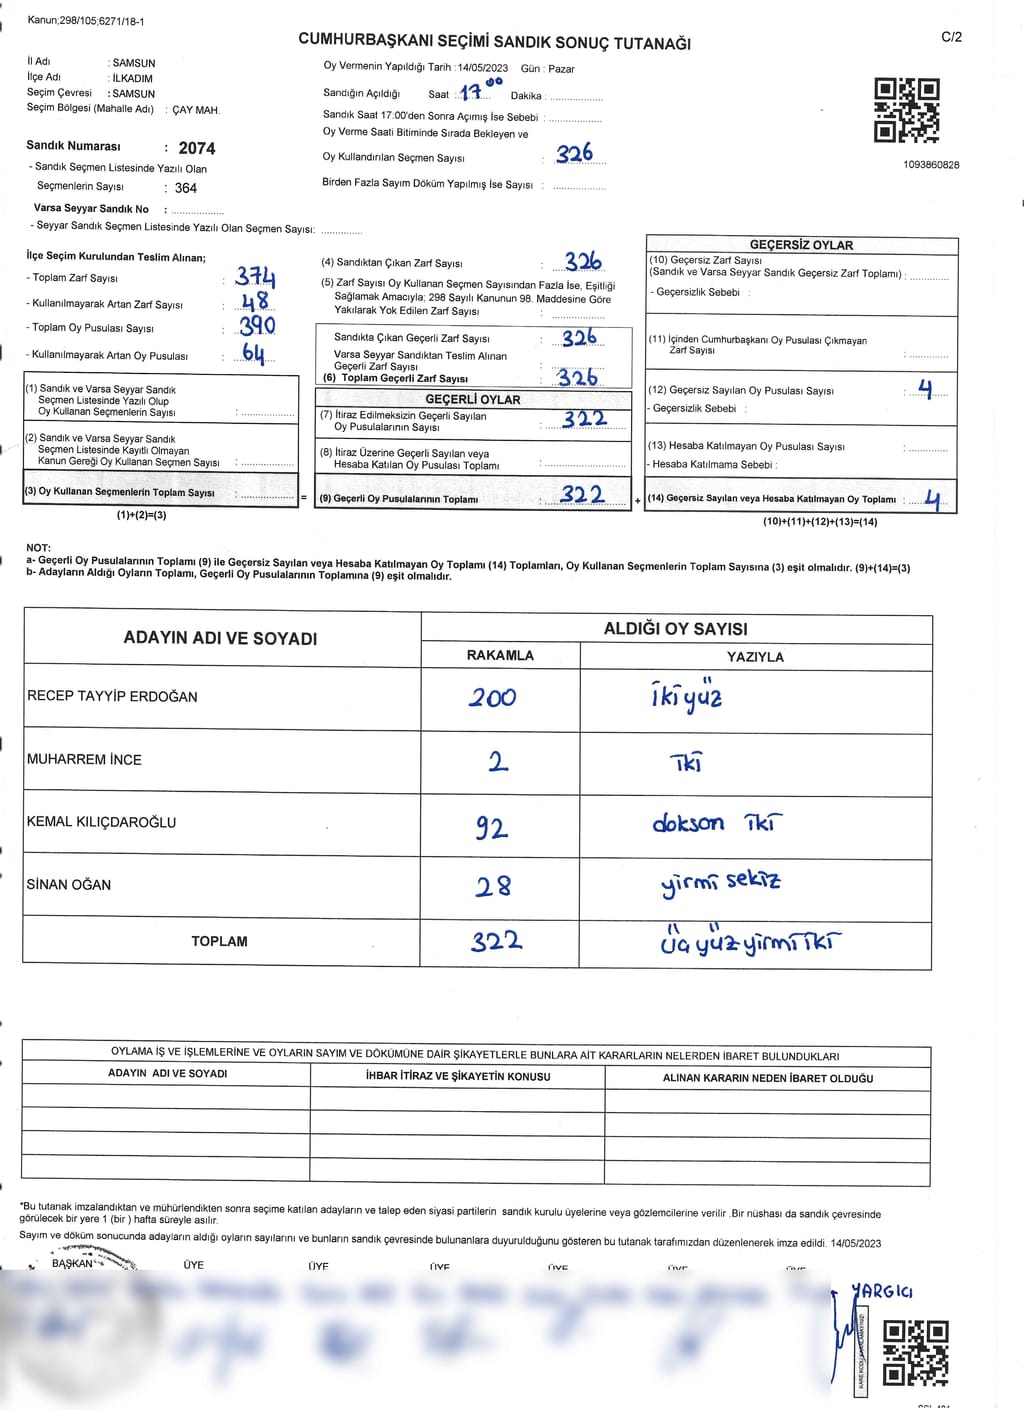 Kanun;298/105;6271/18-1
C/2
CUMHURBAŞKANI SEÇİMİ SANDIK SONUÇ TUTANAĞI
İl Adı : SAMSUN
İlçe Adı : İLKADIM
Seçim Çevresi : SAMSUN
Seçim Bölgesi (Mahalle Adı) : ÇAY MAH.
Sandık Numarası : 2074
- Sandık Seçmen Listesinde Yazılı Olan
Seçmenlerin Sayısı : 364
Varsa Seyyar Sandık No : ..................
- Seyyar Sandık Seçmen Listesinde Yazılı Olan Seçmen Sayısı: ..............
Oy Vermenin Yapıldığı Tarih :14/05/2023 Gün : Pazar
Sandığın Açıldığı Saat : 17 00 Dakika : ..................
Sandık Saat 17:00'den Sonra Açımış İse Sebebi : ..................
Oy Verme Saati Bitiminde Sırada Bekleyen ve
Oy Kullandırılan Seçmen Sayısı : 326
Birden Fazla Sayım Döküm Yapılmış İse Sayısı : ..................
1093860828
İlçe Seçim Kurulundan Teslim Alınan;
- Toplam Zarf Sayısı : 374
- Kullanılmayarak Artan Zarf Sayısı : 48
- Toplam Oy Pusulası Sayısı : 390
- Kullanılmayarak Artan Oy Pusulası : 64
(1) Sandık ve Varsa Seyyar Sandık
Seçmen Listesinde Yazılı Olup
Oy Kullanan Seçmenlerin Sayısı : ..................
(2) Sandık ve Varsa Seyyar Sandık
Seçmen Listesinde Kayıtlı Olmayan
Kanun Gereği Oy Kullanan Seçmen Sayısı : ..................
(3) Oy Kullanan Seçmenlerin Toplam Sayısı : .................. =
(1)+(2)=(3)
(4) Sandıktan Çıkan Zarf Sayısı : 326
(5) Zarf Sayısı Oy Kullanan Seçmen Sayısından Fazla İse, Eşitliği
Sağlamak Amacıyla; 298 Sayılı Kanunun 98. Maddesine Göre
Yakılarak Yok Edilen Zarf Sayısı : ..................
Sandıkta Çıkan Geçerli Zarf Sayısı : 326
Varsa Seyyar Sandıktan Teslim Alınan
Geçerli Zarf Sayısı : ..................
(6) Toplam Geçerli Zarf Sayısı : 326
GEÇERLİ OYLAR
(7) İtiraz Edilmeksizin Geçerli Sayılan
Oy Pusulalarının Sayısı : 322
(8) İtiraz Üzerine Geçerli Sayılan veya
Hesaba Katılan Oy Pusulası Toplamı : ..................
(9) Geçerli Oy Pusulalarının Toplamı : 322 +
GEÇERSİZ OYLAR
(10) Geçersiz Zarf Sayısı
(Sandık ve Varsa Seyyar Sandık Geçersiz Zarf Toplamı) : ..............
- Geçersizlik Sebebi :
(11) İçinden Cumhurbaşkanı Oy Pusulası Çıkmayan
Zarf Sayısı : ..............
(12) Geçersiz Sayılan Oy Pusulası Sayısı : 4
- Geçersizlik Sebebi :
(13) Hesaba Katılmayan Oy Pusulası Sayısı : ..............
- Hesaba Katılmama Sebebi :
(14) Geçersiz Sayılan veya Hesaba Katılmayan Oy Toplamı : 4
(10)+(11)+(12)+(13)=(14)
NOT:
a- Geçerli Oy Pusulalarının Toplamı (9) ile Geçersiz Sayılan veya Hesaba Katılmayan Oy Toplamı (14) Toplamları, Oy Kullanan Seçmenlerin Toplam Sayısına (3) eşit olmalıdır. (9)+(14)=(3)
b- Adayların Aldığı Oyların Toplamı, Geçerli Oy Pusulalarının Toplamına (9) eşit olmalıdır.
ADAYIN ADI VE SOYADI ALDIĞI OY SAYISI
RAKAMLA YAZIYLA
RECEP TAYYİP ERDOĞAN 200 ikiyüz
MUHARREM İNCE 2 iki
KEMAL KILIÇDAROĞLU 92 dokson iki
SİNAN OĞAN 28 yirmi sekiz
TOPLAM 322 üçyüzyirmiiki
OYLAMA İŞ VE İŞLEMLERİNE VE OYLARIN SAYIM VE DÖKÜMÜNE DAİR ŞİKAYETLERLE BUNLARA AİT KARARLARIN NELERDEN İBARET BULUNDUKLARI
ADAYIN ADI VE SOYADI İHBAR İTİRAZ VE ŞİKAYETİN KONUSU ALINAN KARARIN NEDEN İBARET OLDUĞU
*Bu tutanak imzalandıktan ve mühürlendikten sonra seçime katılan adayların ve talep eden siyasi partilerin sandık kurulu üyelerine veya gözlemcilerine verilir .Bir nüshası da sandık çevresinde
görülecek bir yere 1 (bir ) hafta süreyle asılır.
Sayım ve döküm sonucunda adayların aldığı oyların sayılarını ve bunların sandık çevresinde bulunanlara duyurulduğunu gösteren bu tutanak tarafımızdan düzenlenerek imza edildi. 14/05/2023
BAŞKAN ÜYE ÜYE ÜYE ÜYE ÜYE ÜYE
YARGICI